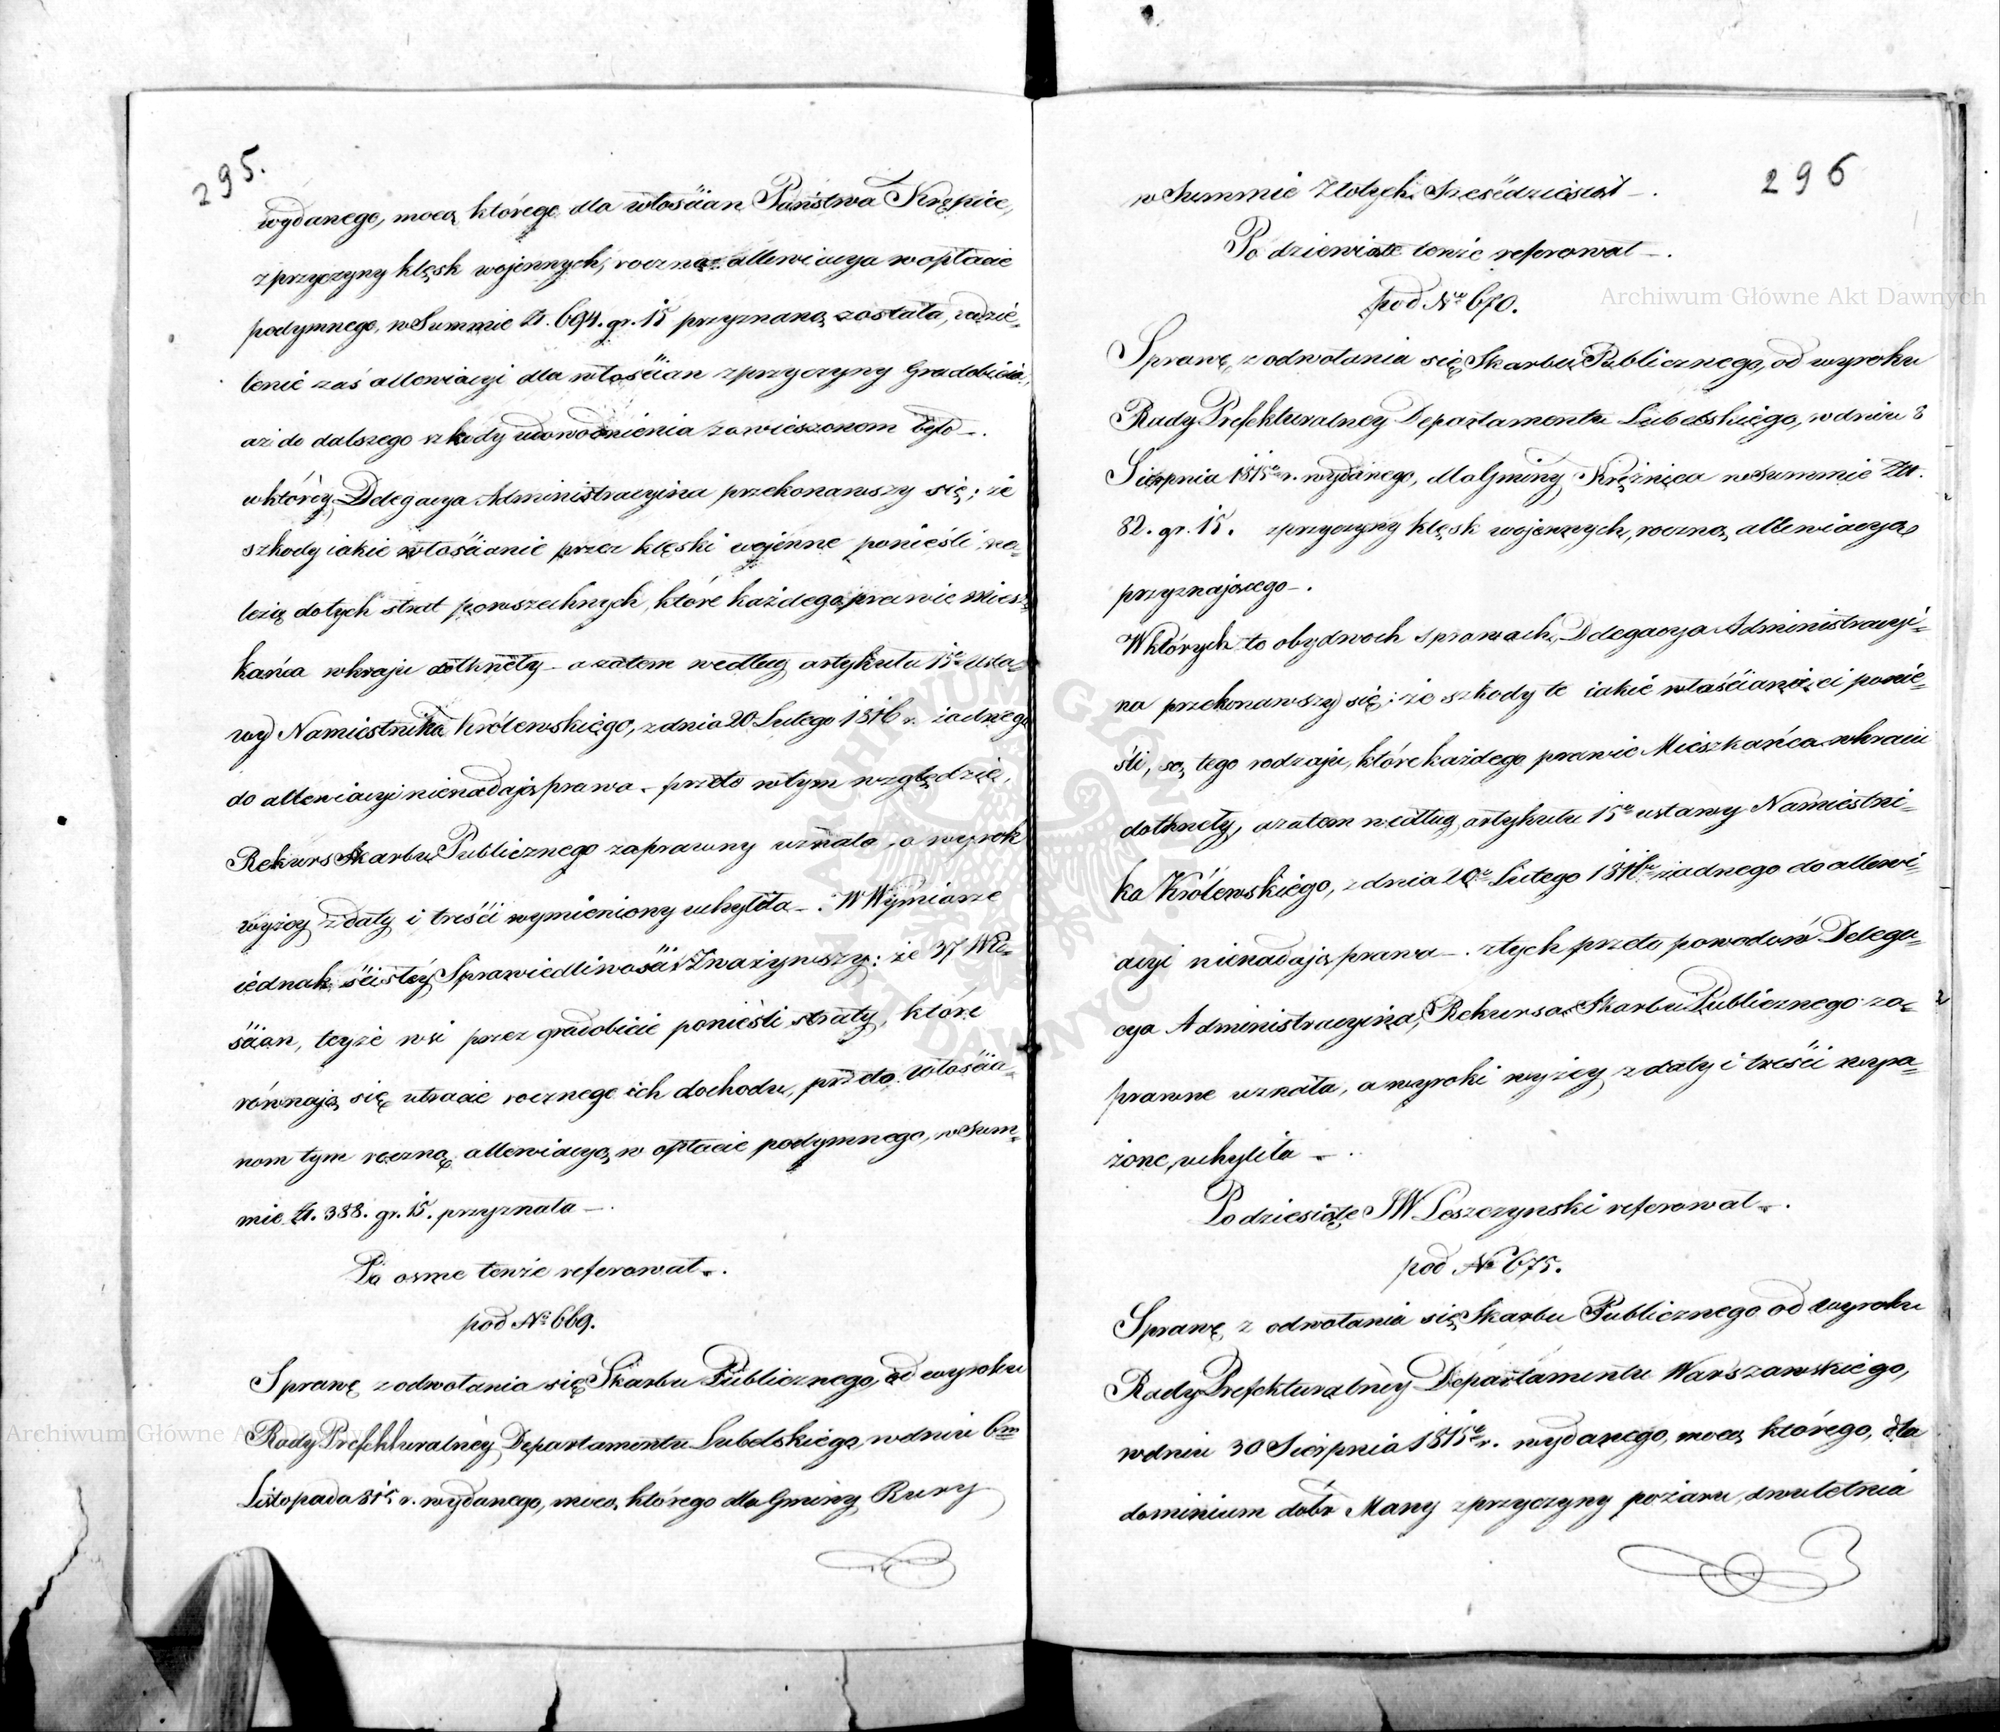 295.
wydanego, mocą którego dla włościan Państwa Krępice,
z przyczyny klęsk wojennych, roczna allewiacya w opłacie
podymnego, w Summie Zł. 694. gr. 15 przyznaną została, udzie-
lenie zaś allewiacyi dla włościan z przyczyny Gradobicia,
aż do dalszego szkody udowodnienia zawieszonem było —.
w któréy Delegacya Administracyina przekonawszy się; że
szkody iakie włościanie przez klęski wojenne ponieśli, na-
leżą do tych strat powszechnych, które każdego prawie miesz-
kańca w kraju dotknęły — a zatem według artykułu 15º Usta-
wy Namiestnika Królewskiego, z dnia 20 Lutego 1816 r. żadnego
do allewiacyi nienadają prawa — przeto w tym względzie,
Rekurs Skarbu Publicznego zaprawny uznała, a wyrok
wyżey z daty i treści wymieniony uchyliła —. W Wymiarze
iednak ścisłéy Sprawiedliwości Zważywszy: że 37 Wło-
ścian, teyże wsi przez gradobicie ponieśli straty, które
równają się utracie rocznego ich dochodu, przeto Włościa-
nom tym roczną allewiacyą w opłacie podymnego, w Sum-
mie Zł. 388. gr. 15. przyznała —.
Po osme tenże referował —.
pod Nº 669.
Sprawę z odwołania się Skarbu Publicznego, od wyroku
Rady Prefekturalnéy Departamentu Lubelskiego, w dniu 6m
Listopada 815 r. wydanego, mocą którego dla Gminy Rury
296
w Summie Złotych Sześćdziesiąt —.
Po dziewiąte tenże referował —.
pod Nº 670.
Sprawę z odwołania się Skarbu Publicznego, od wyroku
Rady Prefekturalnéy Departamentu Lubelskiego, w dniu 8
Sierpnia 1815º r. wydanego, dla Gminy Krężnica w Summie Zł.
82. gr. 15. z przyczyny klęsk wojennych, roczną allewiacyą
przyznającego —.
W których to obydwoch sprawach, Delegacya Administracyi-
na przekonawszy się; że szkody te iakie włościanie ci ponie-
śli, są tego rodzaju, które każdego prawie Mieszkańca w kraiu
dotknęły, a zatem według artykułu 15º ustawy Namiestni-
ka Królewskiego, z dnia 20º Lutego 1816 r. żadnego do allewi-
acyi nienadają prawa —. z tych przeto powodów Delega-
cya Administracyina, Rekursa Skarbu Publicznego za-
prawne uznała, a wyroki wyżey z daty i treści wyra-
żone, uchyliła —.
Po dziesiąte JW Leszczynski referował —.
pod Nº 675.
Sprawę z odwołania się Skarbu Publicznego od wyroku
Rady Prefekturalnéy Departamentu Warszawskiego,
w dniu 30 Sierpnia 1815º r. wydanego, mocą którego, dla
dominium dobr Many z przyczyny pożaru, dwuletnia
Archiwum Główne Akt Dawnych